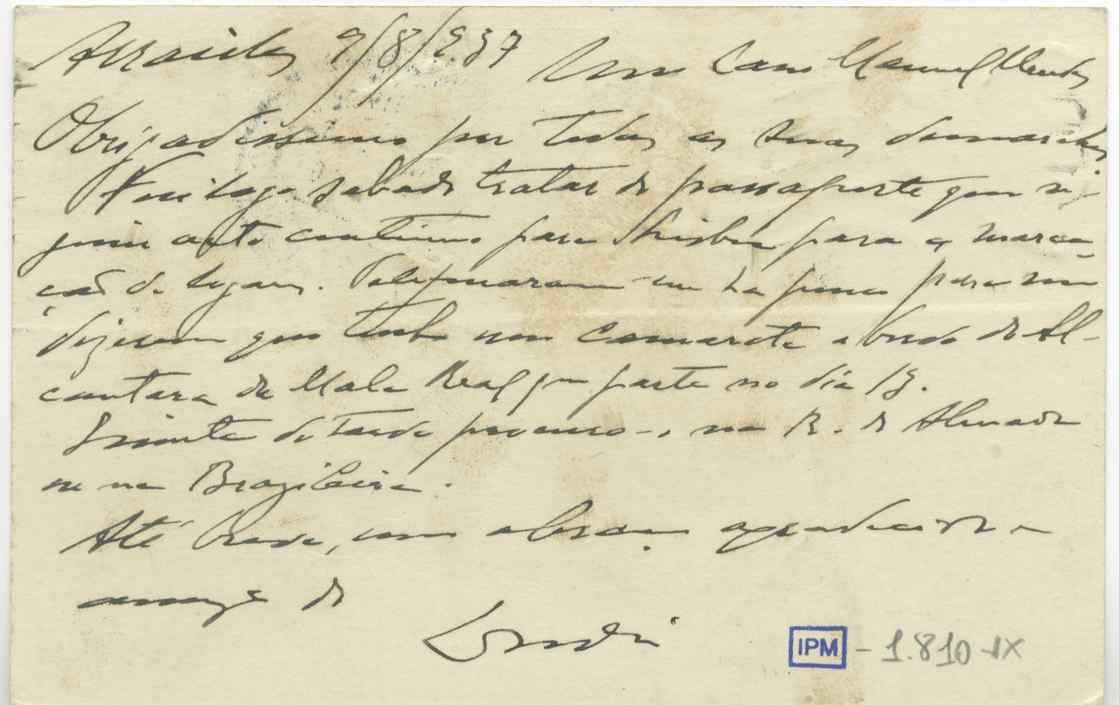 9/8/937 Meu Caro Manuel Mendes
Obrigadissimo por todas as suas demarches
Fui logo sabado tratar do passaporte que se-
guiu acto continuo para Lisboa para a marca-
ção de lugar. Telefonaram-me ha pouco para me
dizerem que tenho um camarote a bordo do Al-
cantara da Mala Real que parte no dia
de tarde procuro-o na R. do Almada
ou na Brazileira.
Até breve, um abraço agradecido e
amigo do
IPM - 1.810-IX